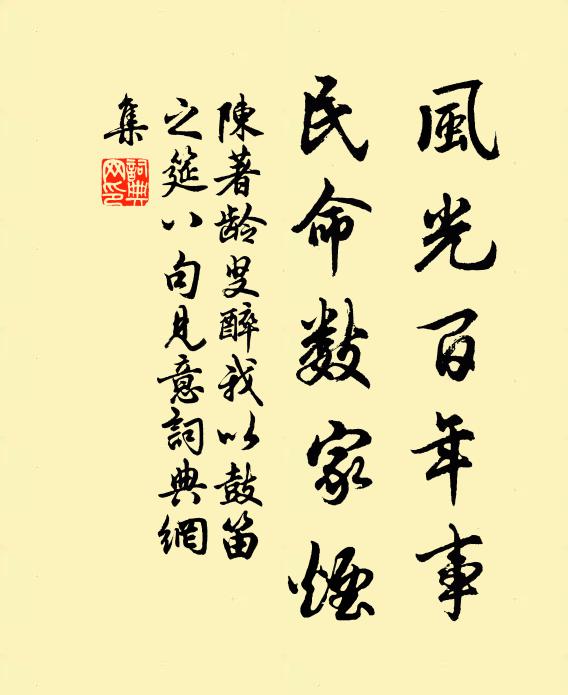 風光百年事
民命数家煙
陳著龄叟醉我以鼓笛
之筵八句見意詞典網
集
詞典
网印